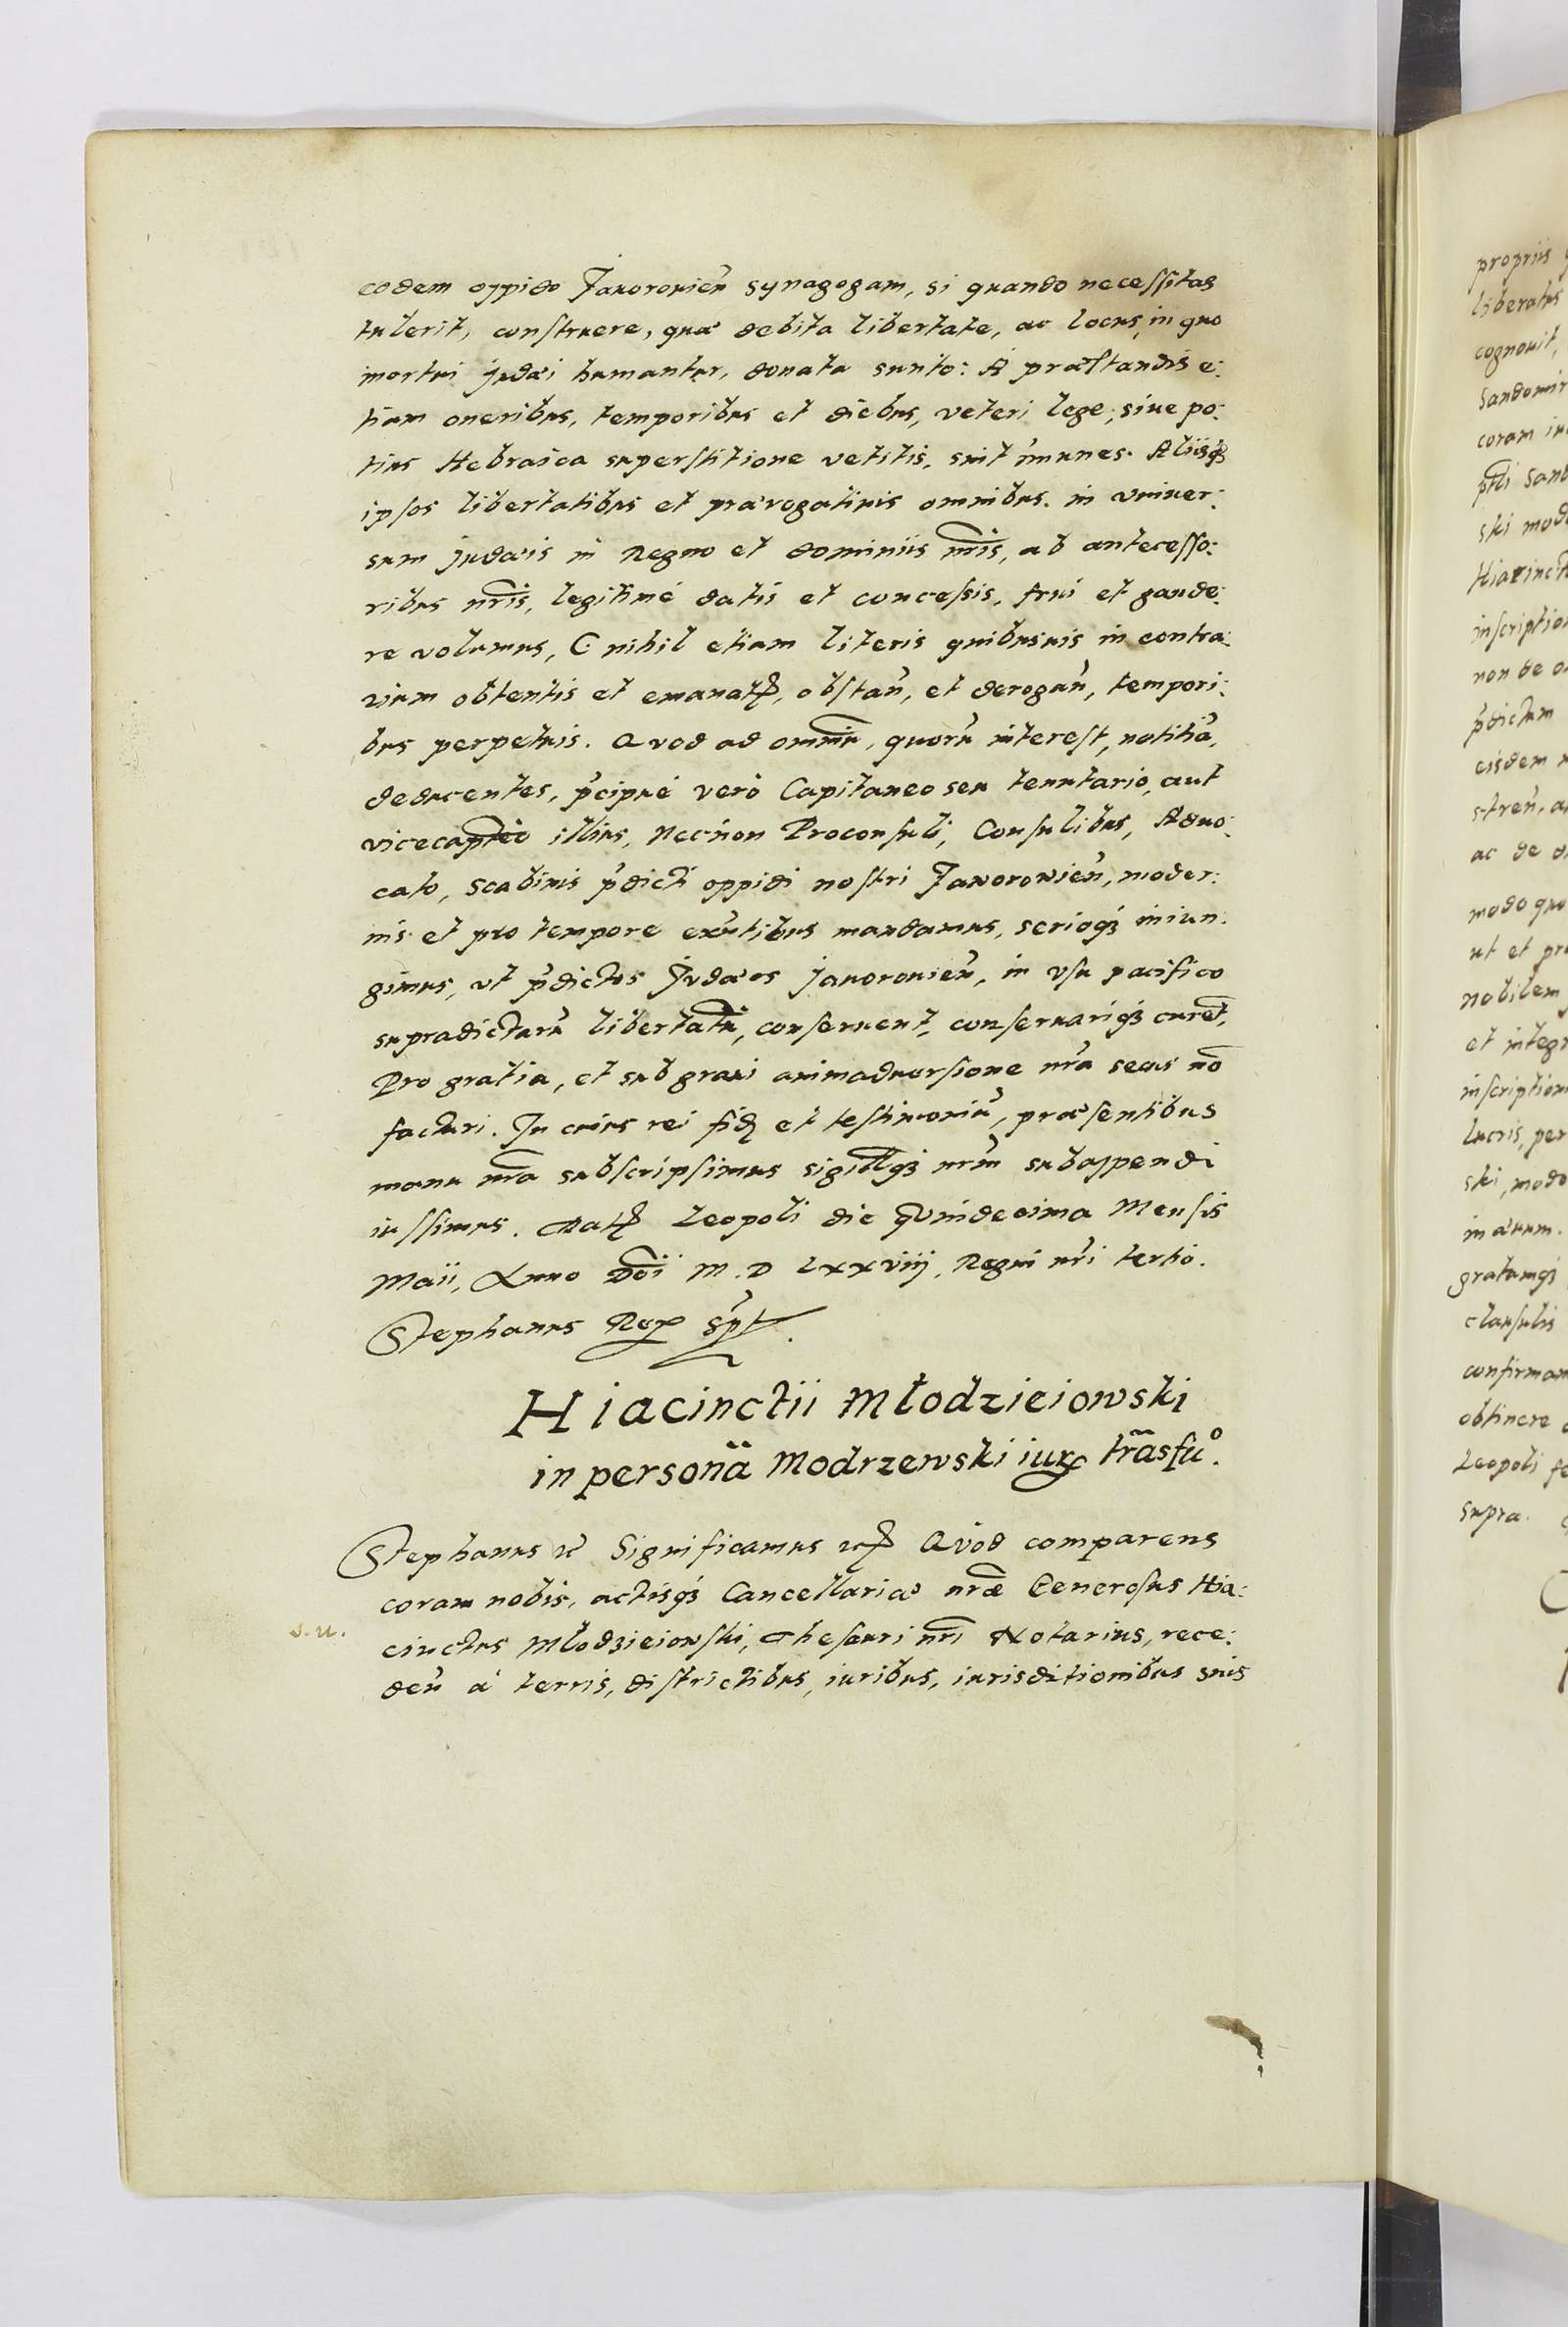 eodem oppido Jauorouien̄ synagogam, si quando necessitas
tulerit, construere, quæ debita libertate, ac locus, in quo
mortui judæi humantur, donata sunto: A præstandis e:
tiam oneribus, temporibus et diebus, veteri lege, siue po:
tius Hebraica superstitione vetitis, sint im̄unes. Aliisq3
ipsos libertatibus et prærogatiuis omnibus. in vniuer:
sum judæis in Regno et dominiis nr̄is, ab antecesso:
ribus nr̄is, legitimé datis et concessis, frui et gaude:
re volumus, C nihil etiam literis quibusuis in contra:
rium obtentis et emanatꝭ, obstan̄, et derogan̄, tempori:
bus perpetuis. Quod ad omniū, quorū interest, notitiā,
deducentes, p̄cipué veró Capitaneo seu tenutario, aut
vicecap̄teo illius, necnon Proconsuli, Consulibus, Aduo:
cato, scabinis p̄dicti oppidi nostri Jaworowien̄, moder:
nis et pro tempore exn̄tibus mandamus, serioq3 iniun:
gimus, vt p̄dictos Judæos jauorouien̄, in vsu pacifico
supradictarū libertatū, conseruent, conseruariq3 curēt,
Pro gratia, et sub graui animaduersione nr̄a secus nō
facturi. In cuius rei fidꝭ et testimoniū, præsentibus
manu nr̄a subscripsimus sigillq3 nr̄m subappendi
iussimus. Datꝭ Leopoli die quindecima Mensis
Maii, Anno Dōi M. D Lxxviij, Regni nr̄i tertio.
Stephanus Rex s̄pt.
Hiacinctii Młodzieiowski
in personā Modrzewski iurꝭ trāsfuº.
Stephanus ꝛc Significamus ꝛꝭ Quod comparens
coram nobis, actisq3 Cancellariæ nr̄æ Generosus Hia:
cinctus Młodzieiowski, Thesauri nr̄i Notarius, rece:
s.u.
den̄ á terris, districtibus, iuribus, iurisditionibus suis
propriis
liberatus
cognouit,
Sandomir
coram
ski
inscription
non de
p̄dictum
eisdem
stren̄,
ac de
modo quo
ut et
nobilem
et integr
inscription
lucris, per
ski, modo
in æuum.
gratamq3
clausulis
confirman
obtinere
Leopoli
supra.